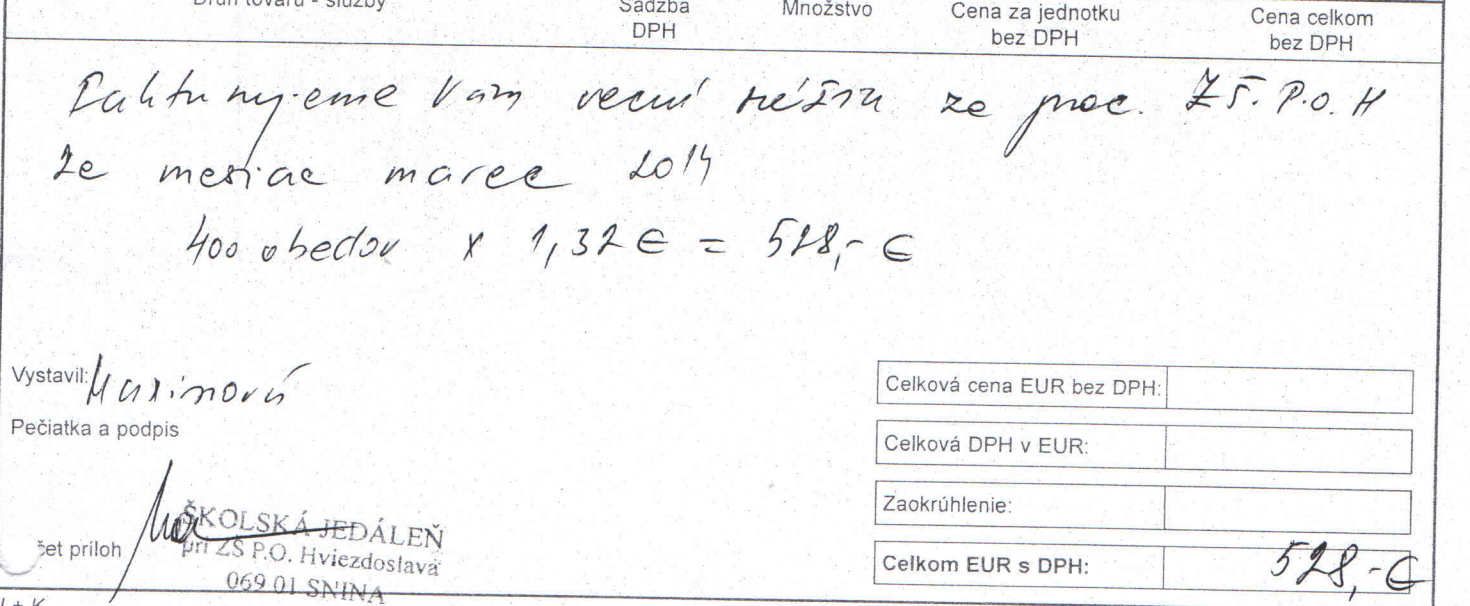 Druh tovaru - služby Sadzba DPH Množstvo Cena za jednotku bez DPH Cena celkom bez DPH
Fakturujeme Vám vecnú réžiu za prac. ZŠ. P.O.H
za mesiac marec 2014
400 obedov x 1,32 € = 528,- €
Vystavil: Maximová
Pečiatka a podpis
ŠKOLSKÁ JEDÁLEŇ
pri ZŠ P.O. Hviezdoslava
069 01 SNINA
čet príloh
Celková cena EUR bez DPH:
Celková DPH v EUR:
Zaokrúhlenie:
Celkom EUR s DPH: 528,- €